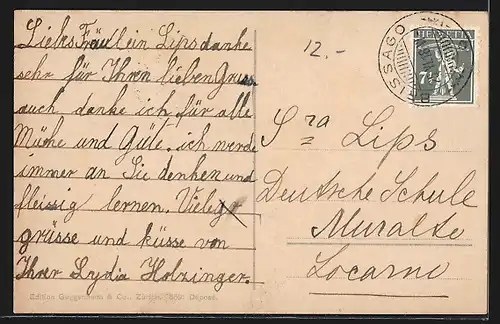 Liebes Fräulein Lips danke
sehr für Ihren lieben Gruss
auch danke ich für alle
Mühe und Güte. ich werde
immer an Sie denken und
fleissig lernen. Viele
grüsse und küsse von
Ihrer Lydia Holzinger.
Edition Guggenheim & Co., Zürich. Déposé.
12.-
HELVETIA
7½
BRISSAGO
Sra Lips
Deutsche Schule
Muralto
Locarno